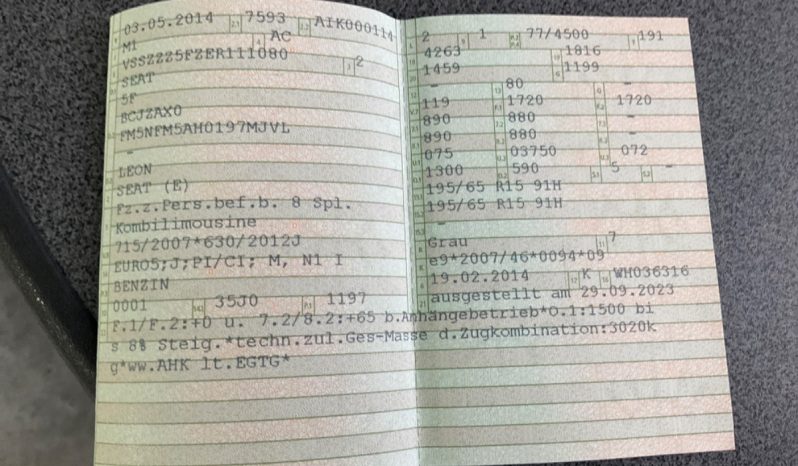 03.05.2014 7593 AIK000114
M1 AC
VSSZZZ5FZER111080 2
SEAT
5F
BCJZAX0
FM5NFM5AH0197MJVL
-
LEON
SEAT (E)
Fz.z.Pers.bef.b. 8 Spl.
Kombilimousine
715/2007*630/2012J
EURO5;J;PI/CI; M, N1 I
BENZIN
0001 35J0 1197
2 1 77/4500 191
4263 1816
1459 1199
- 80 -
119 1720 1720
890 880 -
890 880 -
075 03750 072
1300 590 5 -
195/65 R15 91H
195/65 R15 91H
-
Grau 7
e9*2007/46*0094*09
19.02.2014 K WH036316
ausgestellt am 29.09.2023
F.1/F.2:+0 u. 7.2/8.2:+65 b.Anhängebetrieb*O.1:1500 bi
s 8% Steig.*techn.zul.Ges-Masse d.Zugkombination:3020k
g*ww.AHK lt.EGTG*